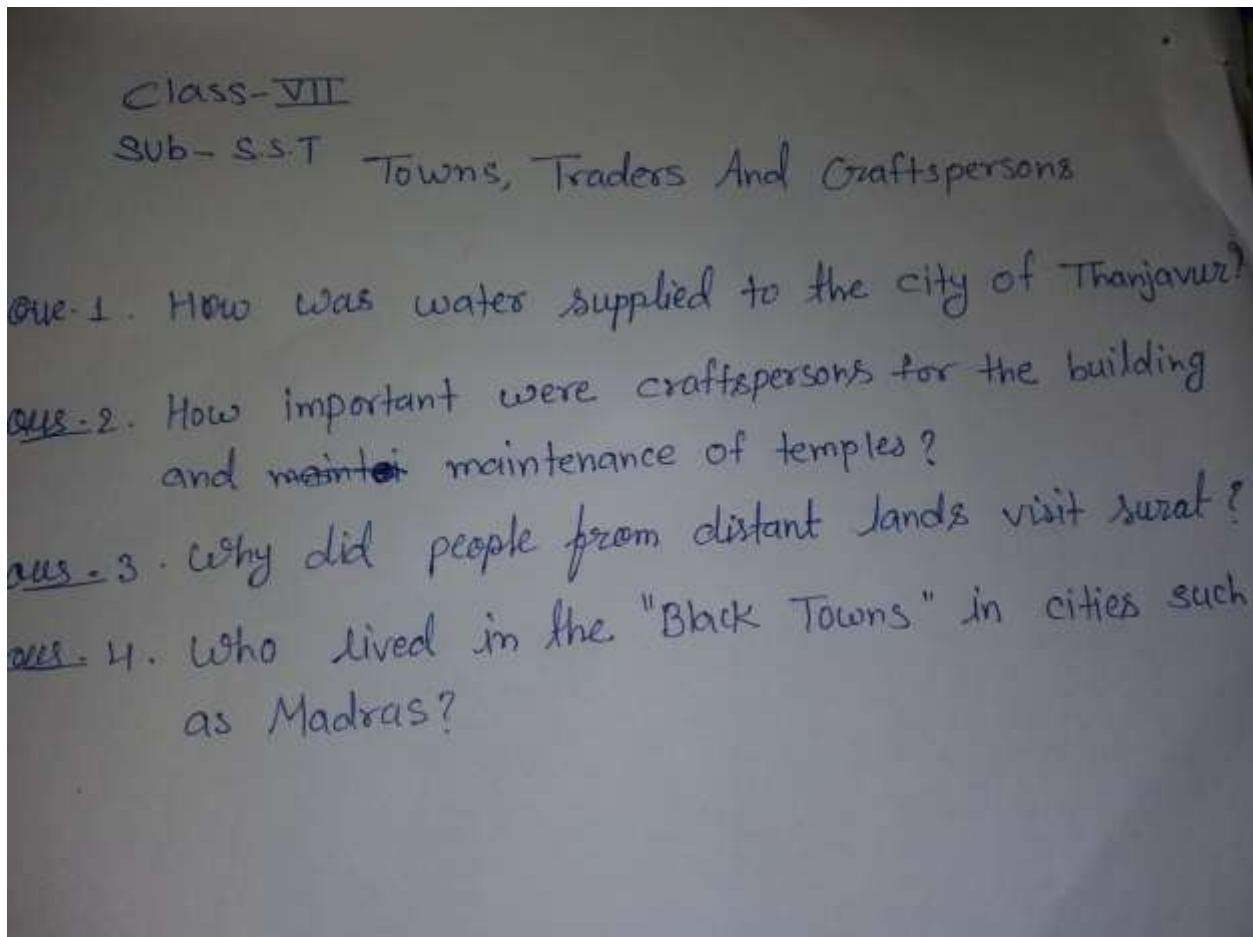 Class-VII
Sub- S.S.T
Towns, Traders And Craftspersons
Que-1. How was water supplied to the city of Thanjavur?
Que-2. How important were craftspersons for the building
and maintenance of temples?
Que-3. Why did people from distant lands visit surat?
Que-4. Who lived in the "Black Towns" in cities such
as Madras?